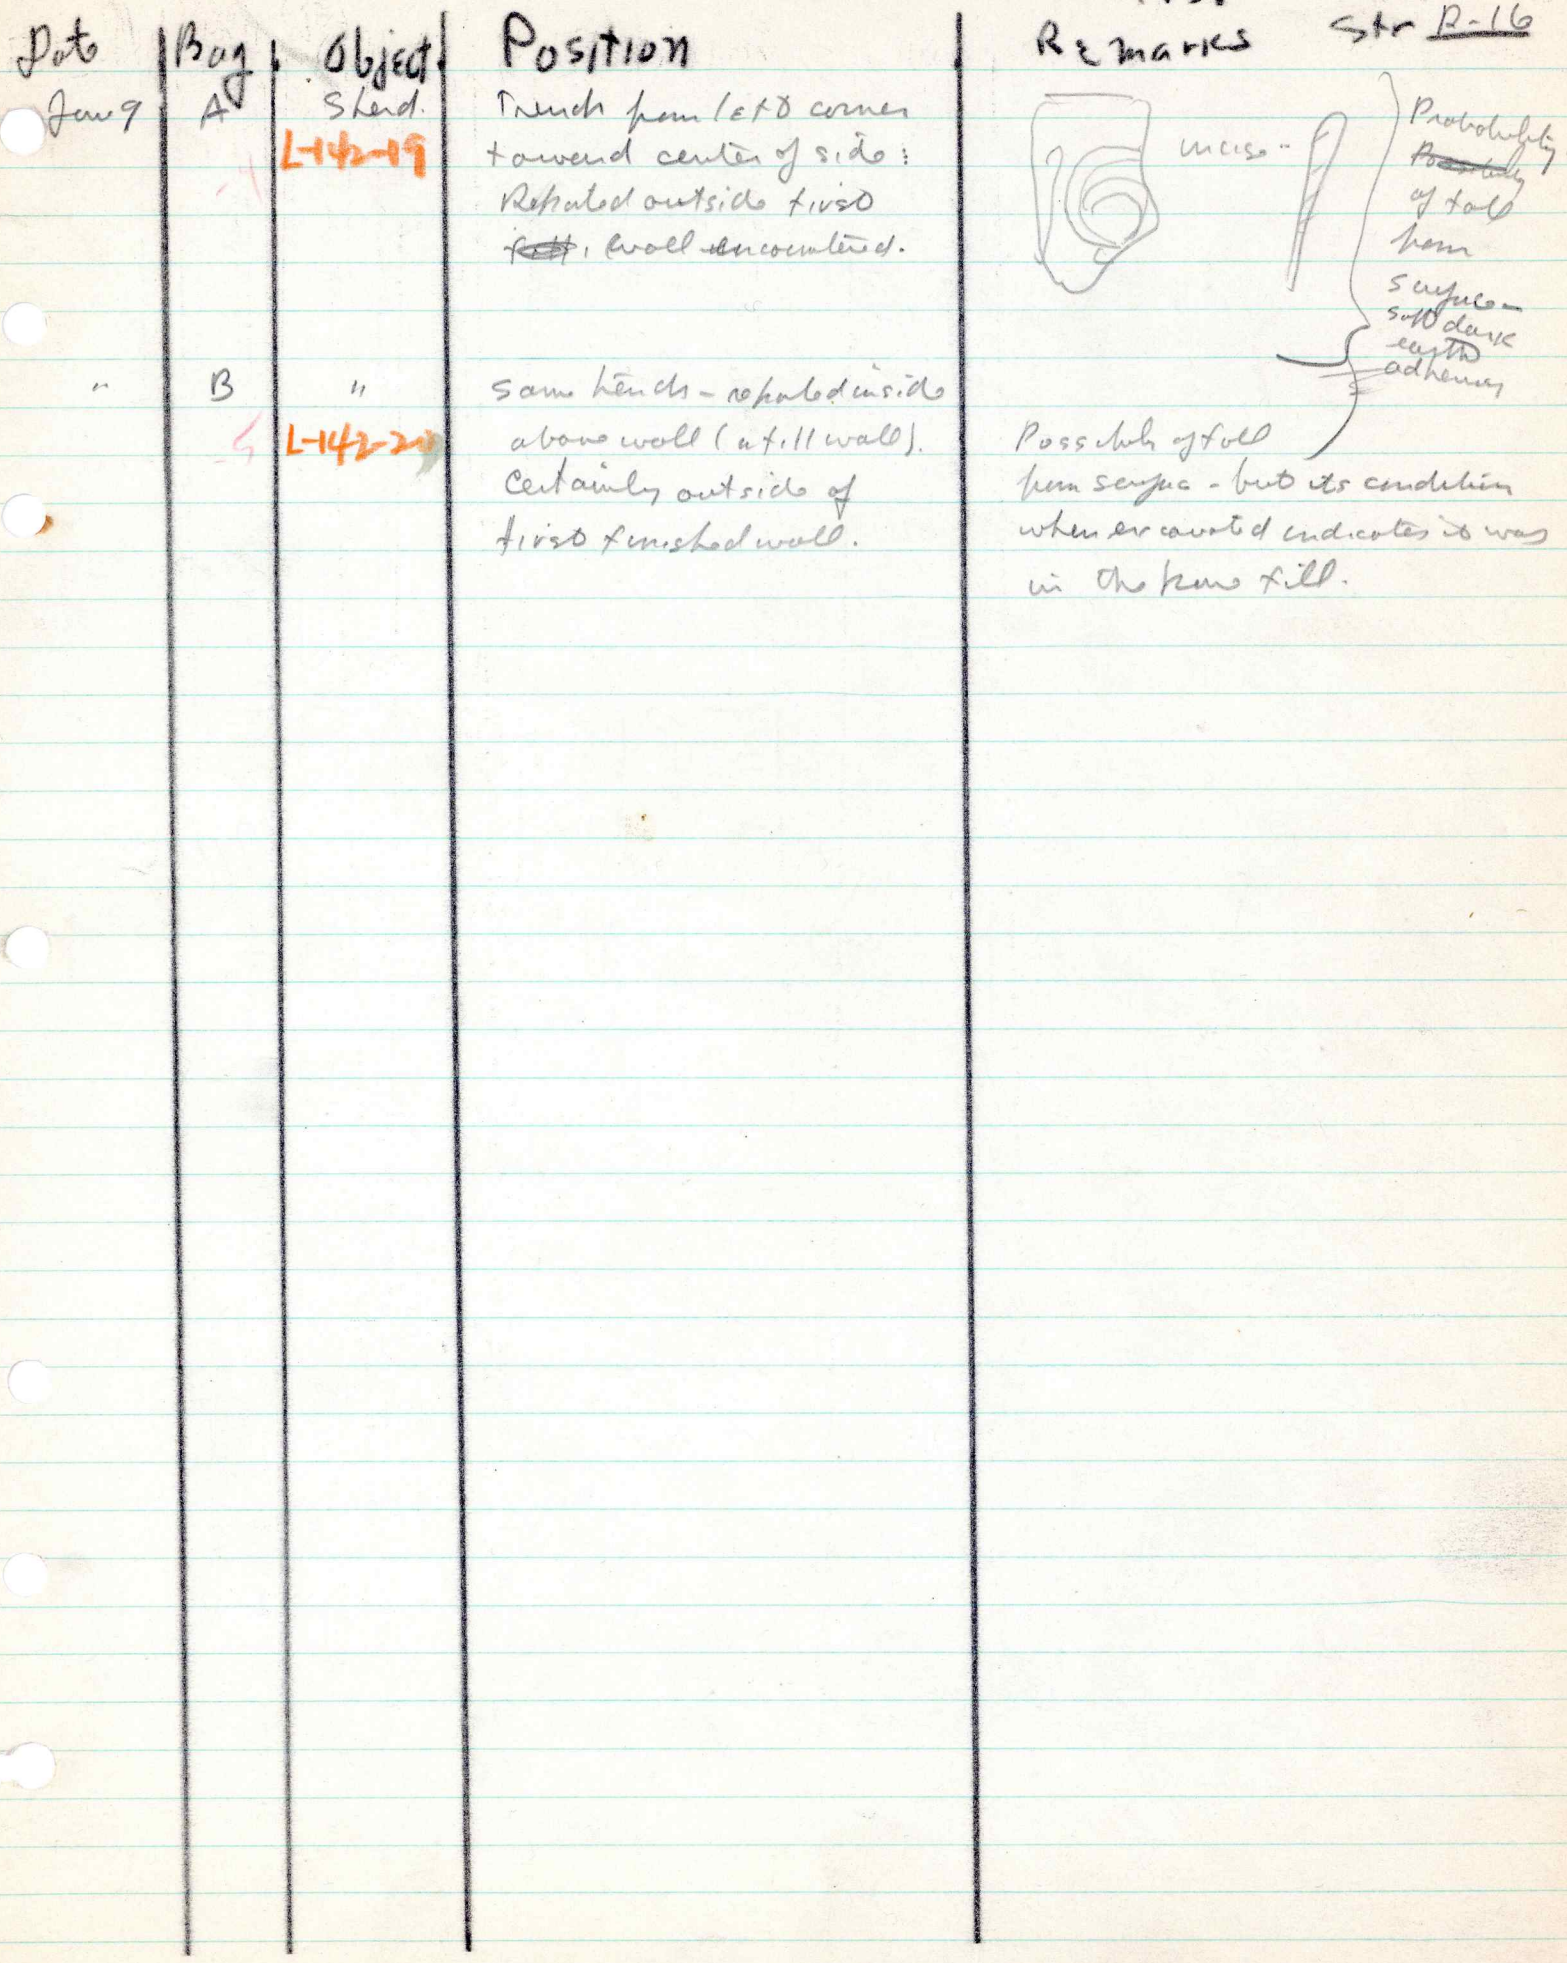 Str R-16
Date Bag Object Position Remarks
Jan 9 A Sherd.
L-142-19
Trench from left corner
toward center of side:
Reported outside first
wall encountered.
incise
Probability
of fall
from
surface -
soft dark
earth
adheres
" B "
L-142-20
same trench - reported inside
above wall (a fill wall).
Certainly outside of
first finished wall.
Possibly of fall
from surface - but its condition
when excavated indicates it was
in the fill.